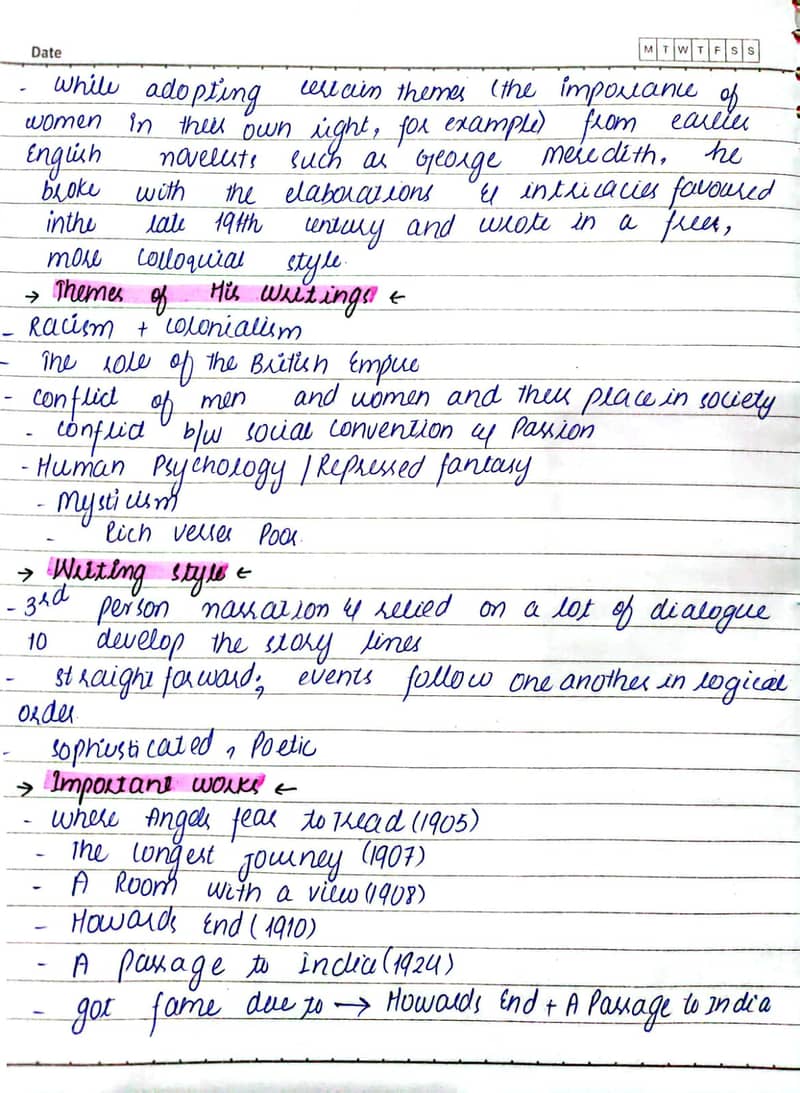 Date M T W T F S S
- While adopting certain themes (the importance of
women in their own right, for example) from earlier
English novelists such as George Meredith, he
broke with the elaborations & intricacies favoured
inthe late 19th century and wrote in a freer,
more colloquial style.
→ Themes of His writings ←
- Racism + colonialism
- The role of the British Empire
- conflict of men and women and their place in society
- conflict b/w social convention & Passion
- Human Psychology / Repressed fantasy
- Mysticism
- Rich verses Poor
→ Writing style ←
- 3rd person narration & relied on a lot of dialogue
to develop the story lines
- straight forward; events follow one another in logical
order
- sophisticated, Poetic
→ Important works ←
- Where Angels fear to Tread (1905)
- The Longest journey (1907)
- A Room with a view (1908)
- Howards End (1910)
- A passage to india (1924)
- got fame due to → Howards End + A Passage to India